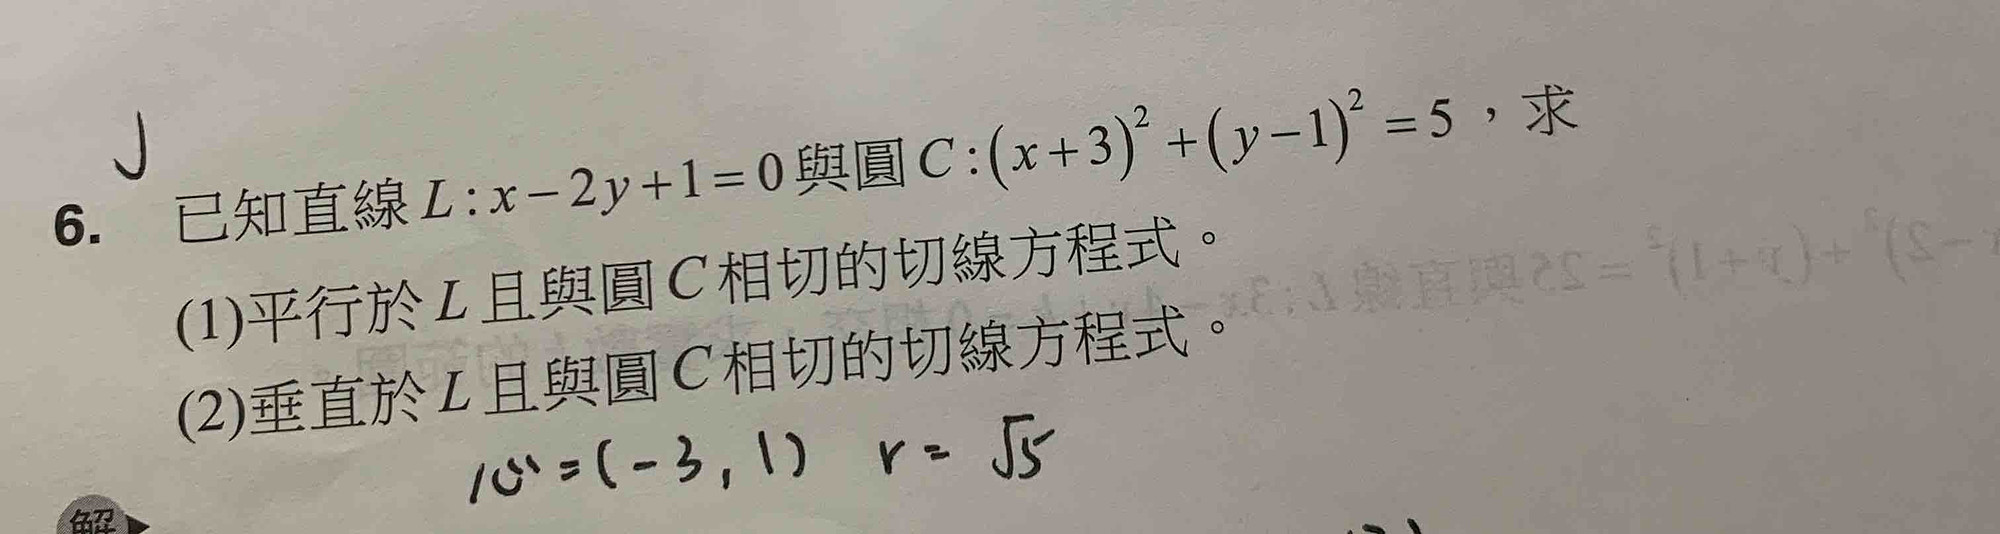 6. 已知直線 L:x-2y+1=0與圓C:(x+3)²+(y-1)²=5,求
(1)平行於L且與圓C相切的切線方程式。
(2)垂直於L且與圓C相切的切線方程式。
心=(-3,1) r=√5
解